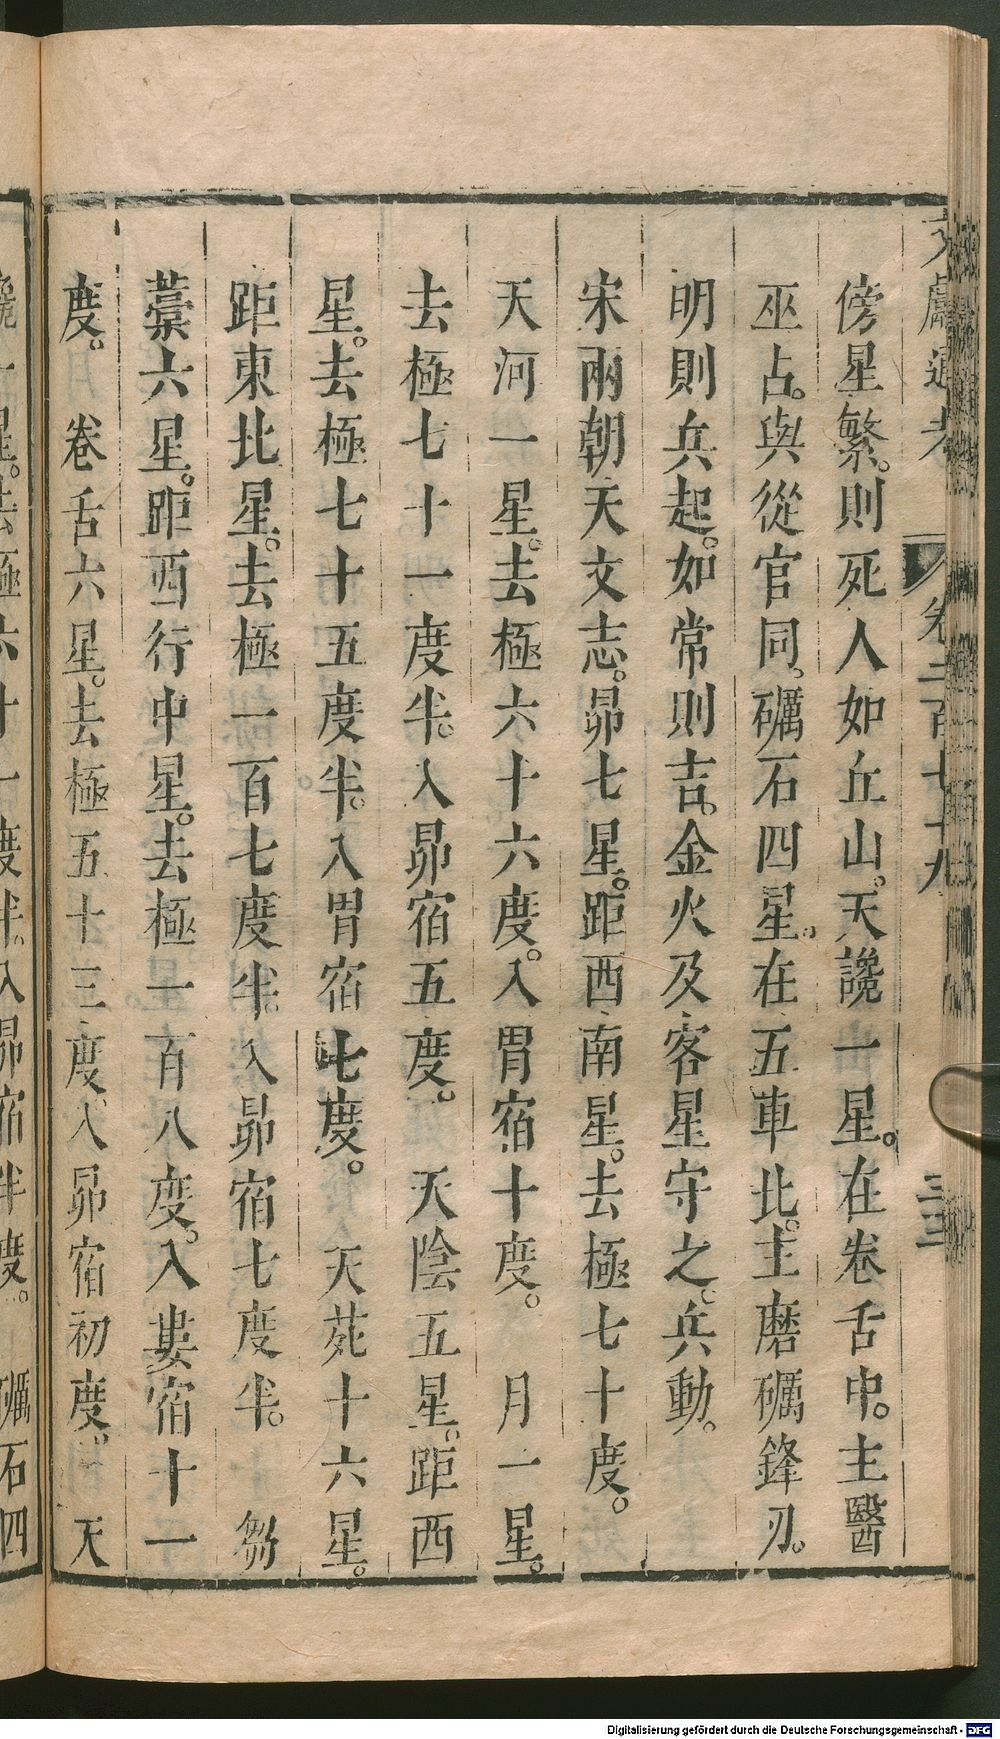 文獻通考 卷二百七十九 三三
傍星繁。則死人如丘山。天讒一星。在卷舌中。主醫
巫占。與從官同。礪石四星。在五車北。主磨礪鋒刃。
明則兵起。如常則吉。金火及客星守之。兵動。
宋兩朝天文志。昴七星。距西南星。去極七十度。
天河一星。去極六十六度。入胃宿十度。 月一星。
去極七十一度半。入昴宿五度。 天陰五星。距西
星。去極七十五度半。入胃宿七度。 天苑十六星。
距東北星。去極一百七度半。入昴宿七度半。 芻
藁六星。距西行中星。去極一百八度。入婁宿十一
度。 卷舌六星。去極五十三度。入昴宿初度。 天
讒一星。去極六十一度半。入昴宿半度。 礪石四
Digitalisierung gefördert durch die Deutsche Forschungsgemeinschaft - DFG